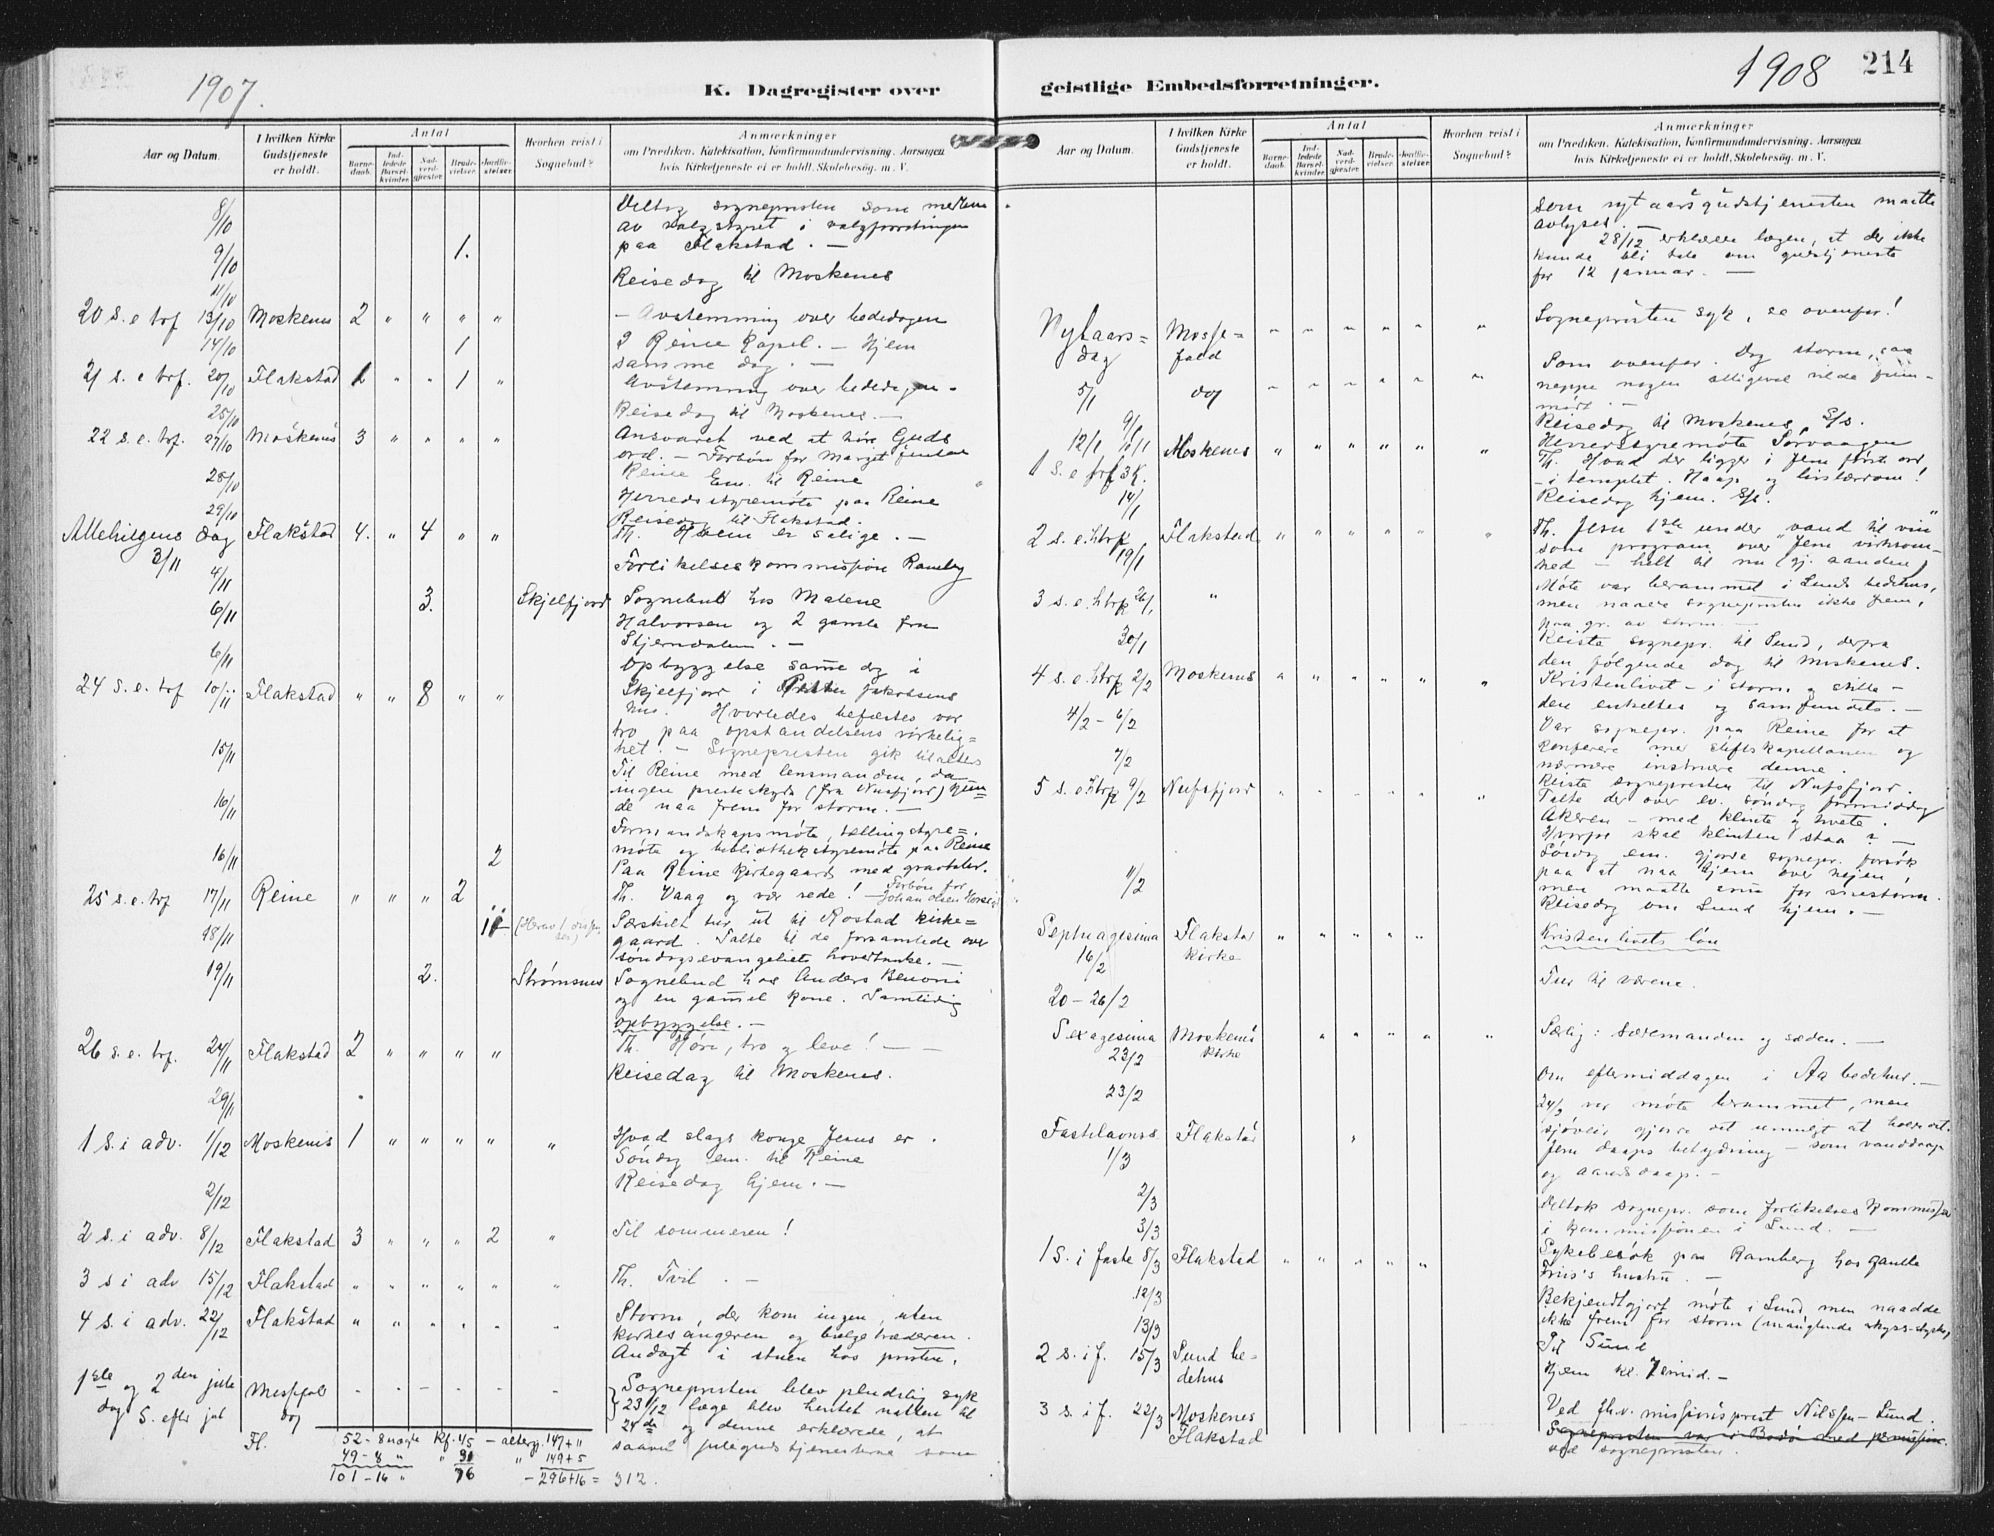 1907.
K. Dagregister over
Aar og Datum.
I hvilken Kirke Gudstjeneste er holdt.
Antal
Barnedaab.
Indledede Barselkvinder.
Nadverdgjester.
Brudevielser.
Jordfæstelser.
Hvorhen reist i Sognebud?
Anmærkninger
om Prædiken, Katekisation, Konfirmandundervisning, Aarsagen
hvis Kirketjeneste ei er holdt, Skolebesøg, m. V.
8/10 Deltog sognepresten som medlem
av valgstyret i valgforretningen
9/10 1. paa Flakstad. —
11/10 Reisedag til Moskenes
20 s. e. trf 13/10 Moskenes 2 " " " " — Avstemning over bededagen
14/10 1 I Reine Kapel. — Hjem
samme dag. —
21 s. e. trf. 20/10 Flakstad " " 1 " Avstemning over bededagen.
25/10 Reisedag til Moskenes. —
22 s. e. trf. 27/10 Moskenes 3 " " " " Ansvaret ved at høre Guds
ord. — Forbøn for
Reine Em. til Reine
28/10 Herredsstyremøte paa Reine
29/10 Reisedag til Flakstad.
Allehelgens dag 3/11 Flakstad 4. " 4 " " Th. Hvem er salige. —
4/11 Forlikelseskommission Ramberg
6/11 3. Skjelfjord Sognebud hos Malene
Halvorsen og 2 gamle fra
Skjerndalen. —
6/11 Opbyggelse samme dag i
24 s. e. trf 10/11 Flakstad " " 8 " " Skjelfjord i Jakobsens
hus. Hvorledes befæstes vor
tro paa opstandelsens virkelig=
het. — Sognepresten gik til alters
15/11 Til Reine med lensmanden, da
ingen presteskyds (fra Nusfjord) kun=
16/11 de naa frem for storm. —
Formandskapsmøte, tællingstyre=
møte og bibliothekstyremøte paa Reine
16/11 2 Paa Reine kirkegaard med gravtaler.
25 s. e. trf 17/11 Reine " " " 2 Th. Vaag og vær rede! — Forbøn for
Johan Olsen
18/11 11 Særskilt tur ut til Rostad kirke=
gaard. Talte til de forsamlede over
søndagsevangeliets hovedtanke. —
19/11 2. Strømsnes Sognebud hos Anders Benoni
og en gammel kone. Samtidig
opbyggelse. —
26 s. e. trf. 24/11 Flakstad 2 " " " " Th. Høre, tro og leve! —
Reisedag til Moskenes.
29/11
1 s. i adv. 1/12 Moskenes 1 " " " " " Hvad slags konge Jesus er.
Søndag em. til Reine
2/12 Reisedag hjem. —
2 s. i adv. 8/12 Flakstad 3 " " " 2 " Til sommeren!
3 s i adv 15/12 Flakstad " " " " " " Th. Tvil. —
4 s. i adv. 22/12 Flakstad " " " " " " Storm, der kom ingen, uten
kirkesangeren og bælgetræderen.
Andagt i stuen hos presten.
1ste og 2den jule
dag S. efter jul Messefald - - - - - - Sognepresten blev pludselig syk
23/12 læge blev hentet natten til
24de og denne erklærede, at
saavel julegudstjenesterne som
Fl. 52 - 8 nægte Kf. 45 — alterg. 147 + "
49 - 8 " " 31 " 149 + 5
101 - 16 " 76 - 296 + 16 = 312.
geistlige Embedsforretninger.
1908
214
Aar og Datum.
I hvilken Kirke Gudstjeneste er holdt.
Antal
Barnedaab.
Indledede Barselkvinder.
Nadverdgjester.
Brudevielser.
Jordfæstelser.
Hvorhen reist i Sognebud?
Anmærkninger
om Prædiken, Katekisation, Konfirmandundervisning, Aarsagen
hvis Kirketjeneste ei er holdt, Skolebesøg, m. V.
som nytaarsgudstjenesten maatte
avlyses. —
28/12 erklærte lægen, at der ikke
kunde bli tale om gudstjeneste
før 12 januar. —
Nytaars=
dag Messe=
fald " " " " " " Sognepresten syk, se ovenfor!
5/1 " " " " " " Som ovenfor. Dog storm, saa
neppe nogen alligevel vilde frem=
møtt. —
9/1 Reisedag til Moskenes,
12/1 10/1 Moskenes " " " " " " Herredsstyremøte Sørvaagen
1 s. e. Th. Hvad der ligger i Jesu første ord
— i templet. Haap og
14/1 Reisedag hjem.
2 s. e. htrk 19/1 Flakstad " " " " " " Th. Jesu 1ste under "vand til vin"
som program over Jesu virksom=
hed — helt til nu (gj. aanden)
3 s. e. htrk 26/1 " Møte var berammet i Sunds bedehus,
men naadde sognepresten ikke frem,
paa gr. av storm. —
30/1 Reiste sognepr. til Sund, derfra
den følgende dag til Moskenes.
4 s. e. htrk 2/2 Moskenes " " " " " " Kristenlivet — i storm og stille —
den enkeltes og samfundets. —
4/2 — 6/2 Var sognepr. paa Reine for at
konferere med stiftskapellanen og
nærmere instruere denne.
7/2 Reiste sognepresten til Nufsfjord.
5 s. e. htrk 9/2 Nufsfjord " " " " " " Talte der over ev. søndag formiddag
Akeren — med klinte og hvete.
Hvorfor skal klinten staa? —
Søndag em. gjorde sognepr. forsøk
paa at naa hjem over heien,
men maatte snu for snestorm.
11/2 Reisedag om Sund hjem. —
Septuagesima
16/2 Flakstad
kirke " " " " " Kristenlivets løn
20 — 26/2 Tur til værene.
Sexagesima
23/2 Moskenes
kirke " " " " " Særlig: Sædemanden og sæden. —
23/2 Om eftermiddagen i Aa bedehus. —
24/2 var møte berammet, men
sjøveir gjorde det umulig at holde det.
Fastelavns
1/3 Flakstad " Jesu daaps betydning — som vanddaap
og aandsdaap. —
2/3
3/3 Deltok sognepr. som forlikelseskommissær
i kommissionen i Sund. —
1 s. i faste 8/3 Flakstad " " " " " Sykebesøk paa Ramberg hos gamle
Friis's hustru. —
12/3 Bekjendtgjort møte i Sund, men naadde
13/3 ikke frem for storm (manglende
2 s. i f. 15/3 Sund be=
dehus Til Sund
Hjem kl.
3 s. i f. 22/3 Moskenes
Flakstad Ved fhv. missionsprest Nilssen — Sund.
Sognepresten var i Bodø med permission.
ved sognepresten.